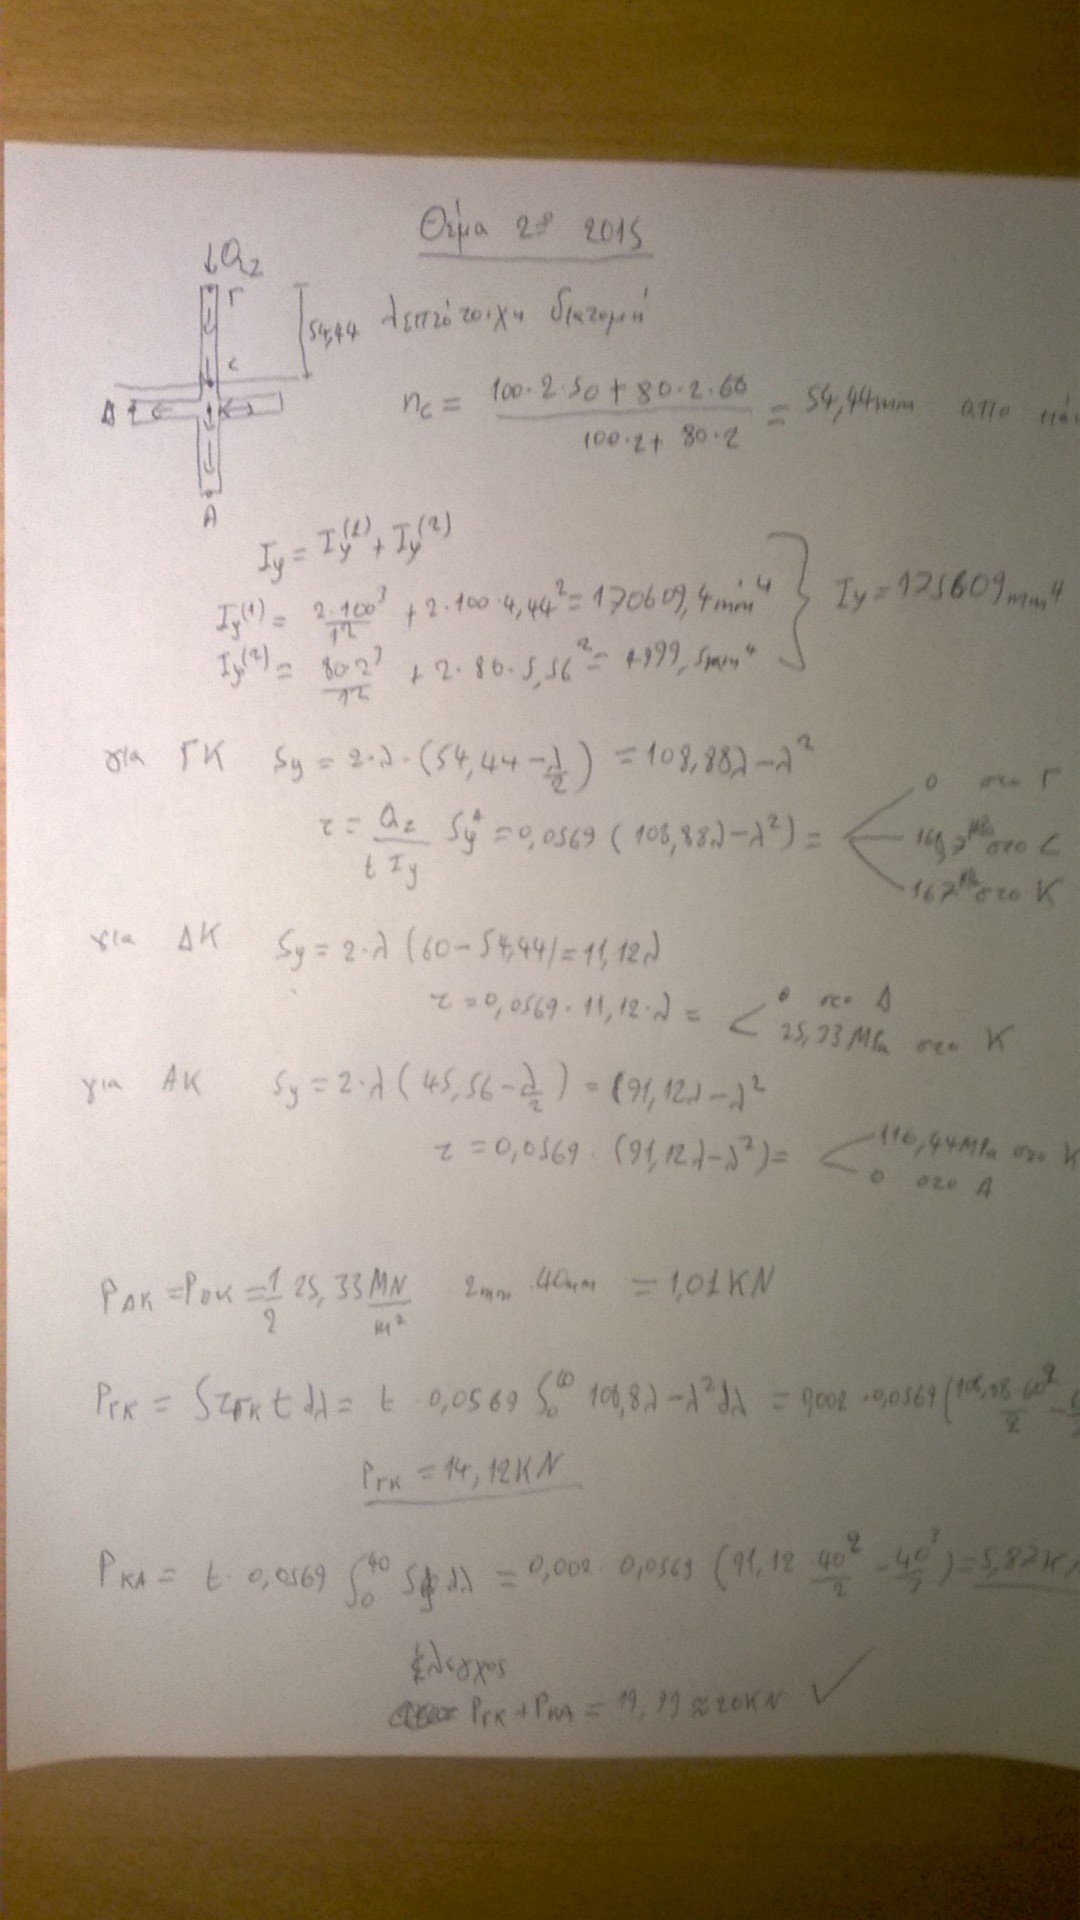 Θέμα 2º 2015
↓Qz
Γ
54,44
λεπτότοιχη διατομή
C
Δ
A
ηc = (100·2·50 + 80·2·60) / (100·2 + 80·2) = 54,44mm απο
Iy = Iy(1) + Iy(2)
Iy(1) = 2·100³/12 + 2·100·4,44² = 170609,4mm⁴
Iy = 175609mm⁴
Iy(2) = 80·2³/12 + 2·80·5,56² = 4999,5mm⁴
για ΓΚ Sy = 2·λ·(54,44 - λ/2) = 108,88λ - λ²
τ = Qz/(t Iy) Sy = 0,0569 (108,88λ - λ²) =
0 στο Γ
στο C
167MPa στο Κ
για ΔΚ Sy = 2·λ (60 - 54,44) = 11,12λ
τ = 0,0569·11,12·λ =
0 στο Δ
25,33MPa στο Κ
για ΑΚ Sy = 2·λ (45,56 - λ/2) = (91,12λ - λ²
τ = 0,0569·(91,12λ - λ²) =
116,44MPa στο Κ
0 στο Α
PΔK = PBK = 1/2 25,33 MN/m² 2mm·40mm = 1,01KN
PΓK = ∫τΓK t dλ = t·0,0569 ∫₀⁶⁰ 108,8λ - λ² dλ = 0,002·0,0569 (108,88·60²/2 -
PΓK = 14,12KN
PKA = t·0,0569 ∫₀⁴⁰ Sy dλ = 0,002·0,0569 (91,12·40²/2 - 40³/3) = 5,87K
έλεγχος
PΓK + PKA = 19,99 ≈ 20KN ✓